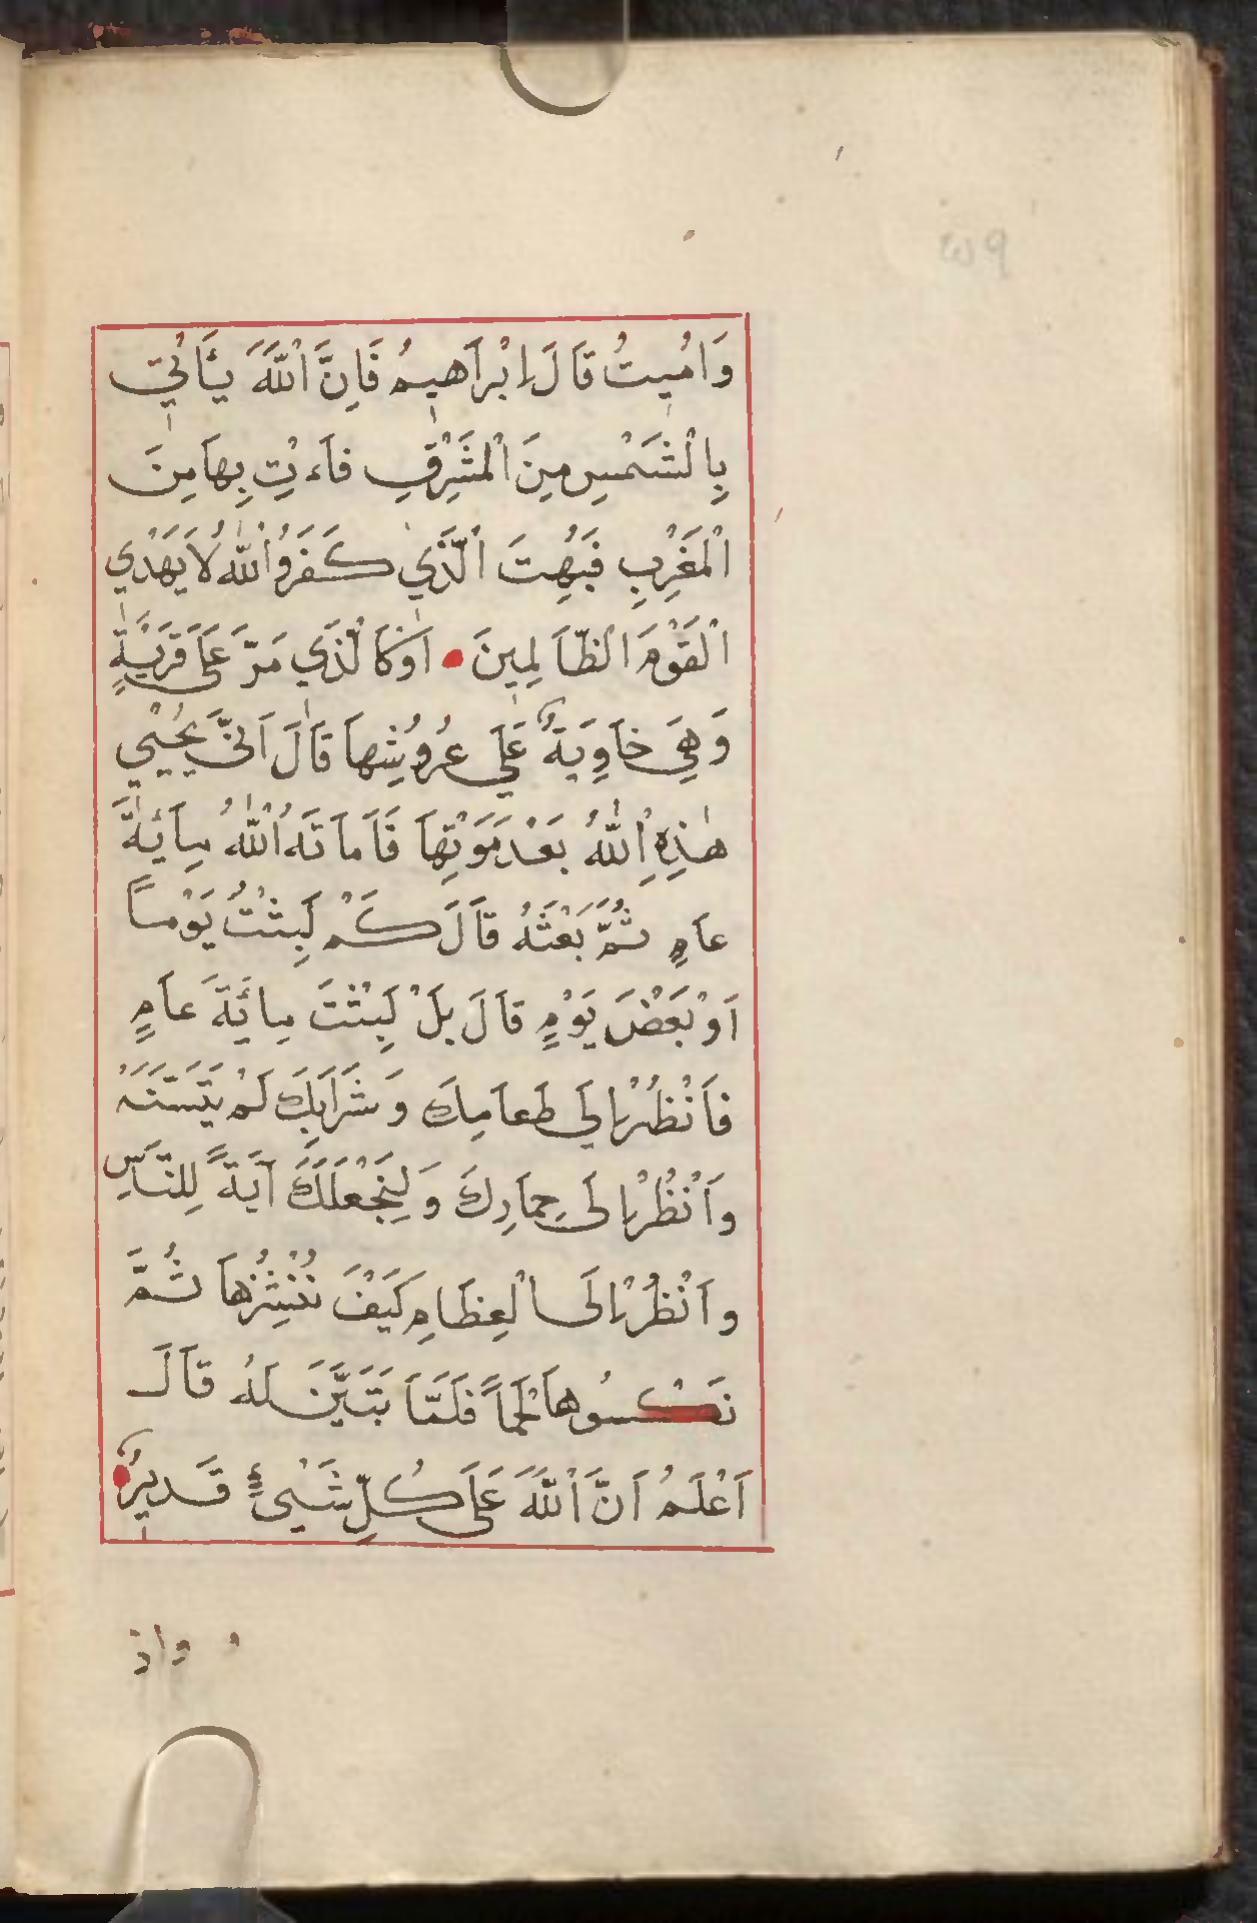 وَاُمِيتُ قَالَ اِبْرَاهِيمُ فَاِنَّ اللّٰهَ يَئَاْتِي
بِالْشَمْسِ مِنَ الْمَشْرِقِ فَاءْتِ بِهَا مِنَ
الْمَغْرِبِ فَبُهِتَ الَّذَي كَفَرَ وُاللّٰهُ لَا يَهْدْي
الْقَوْمَ الْظّاَلِمِينَ اَوْ كَالَّذَي مَرَّ عَلَى قَرْيَةٍ
وَهِيَ خَاوِيَةٌ عَلَى عُرُوُشِهَا قَالَ اَنّىَ يُحْيِي
هٰذِهِ اللّٰهُ بَعْدَ مَوْتِهَا فَاَمَاتَهُ اللّٰهُ مِائَةَ
عَامٍ ثُمَّ بَعَثَهُ قَالَ كَمْ لَبِثْتُ يَوْماً
اَوْ بَعْضَ يَوْمٍ قَالَ بَلْ لَبِثْتَ مِائَةَ عَامٍ
فَاَنْظُرْ اِلَى طَعَامِكَ وَشَرَابِكَ لَمْ يَتَسَنَّهْ
وَاَنْظُرْ اِلَى حِمَارِكَ وَلِنَجْعَلَكَ آيَةً لِلنَّاسِ
وَاَنْظُرْ اِلَى الْعِظَامِ كَيْفَ نُنْشِزُهَا ثُمَّ
نَكْسُوهَا لَحْماً فَلَمَّا تَبَيَّنَ لَهُ قَالَ
اَعْلَمُ اَنَّ اللّٰهَ عَلَى كُلِّ شَيْئٍ قَدِيرٌ
واذ